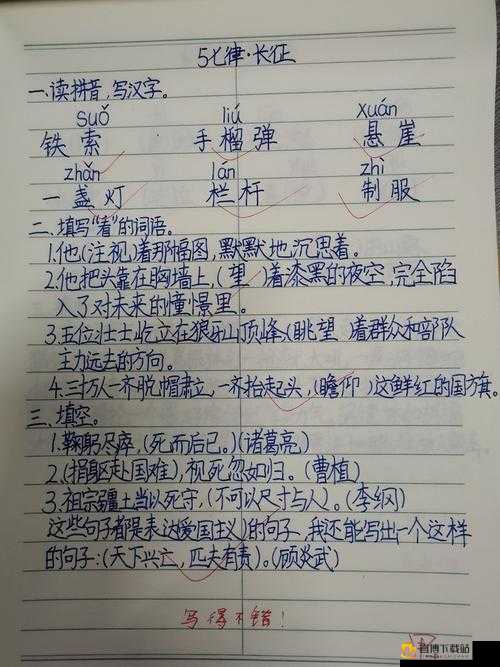 5七律·长征
一.读拼音,写汉字。
suǒ liú xuán
铁索 手榴弹 悬崖
zhǎn lán zhì
一盏灯 栏杆 制服
二、填写“看”的词语。
1.他(注视)着那幅图,默默地沉思着。
2.他把头靠在胸墙上,(望)着漆黑的夜空,完全陷
入了对未来的憧憬里。
3.五位壮士屹立在狼牙山顶峰,(眺望)着群众和部队
主力远去的方向。
4.三十万人一齐脱帽肃立,一齐抬起头,(瞻仰)这鲜红的国旗。
三、填空。
1.鞠躬尽瘁,(死而后已。)(诸葛亮)
2.(捐躯赴国难),视死忽如归。(曹植)
3.祖宗疆土当以死守,(不可以尺寸与人)。(李纲)
这些句子都是表达(爱国主义)的句子,我还能写出一个这样
的句子:(天下兴亡,匹夫有责)。(顾炎武)
写得不错!
首博下载站